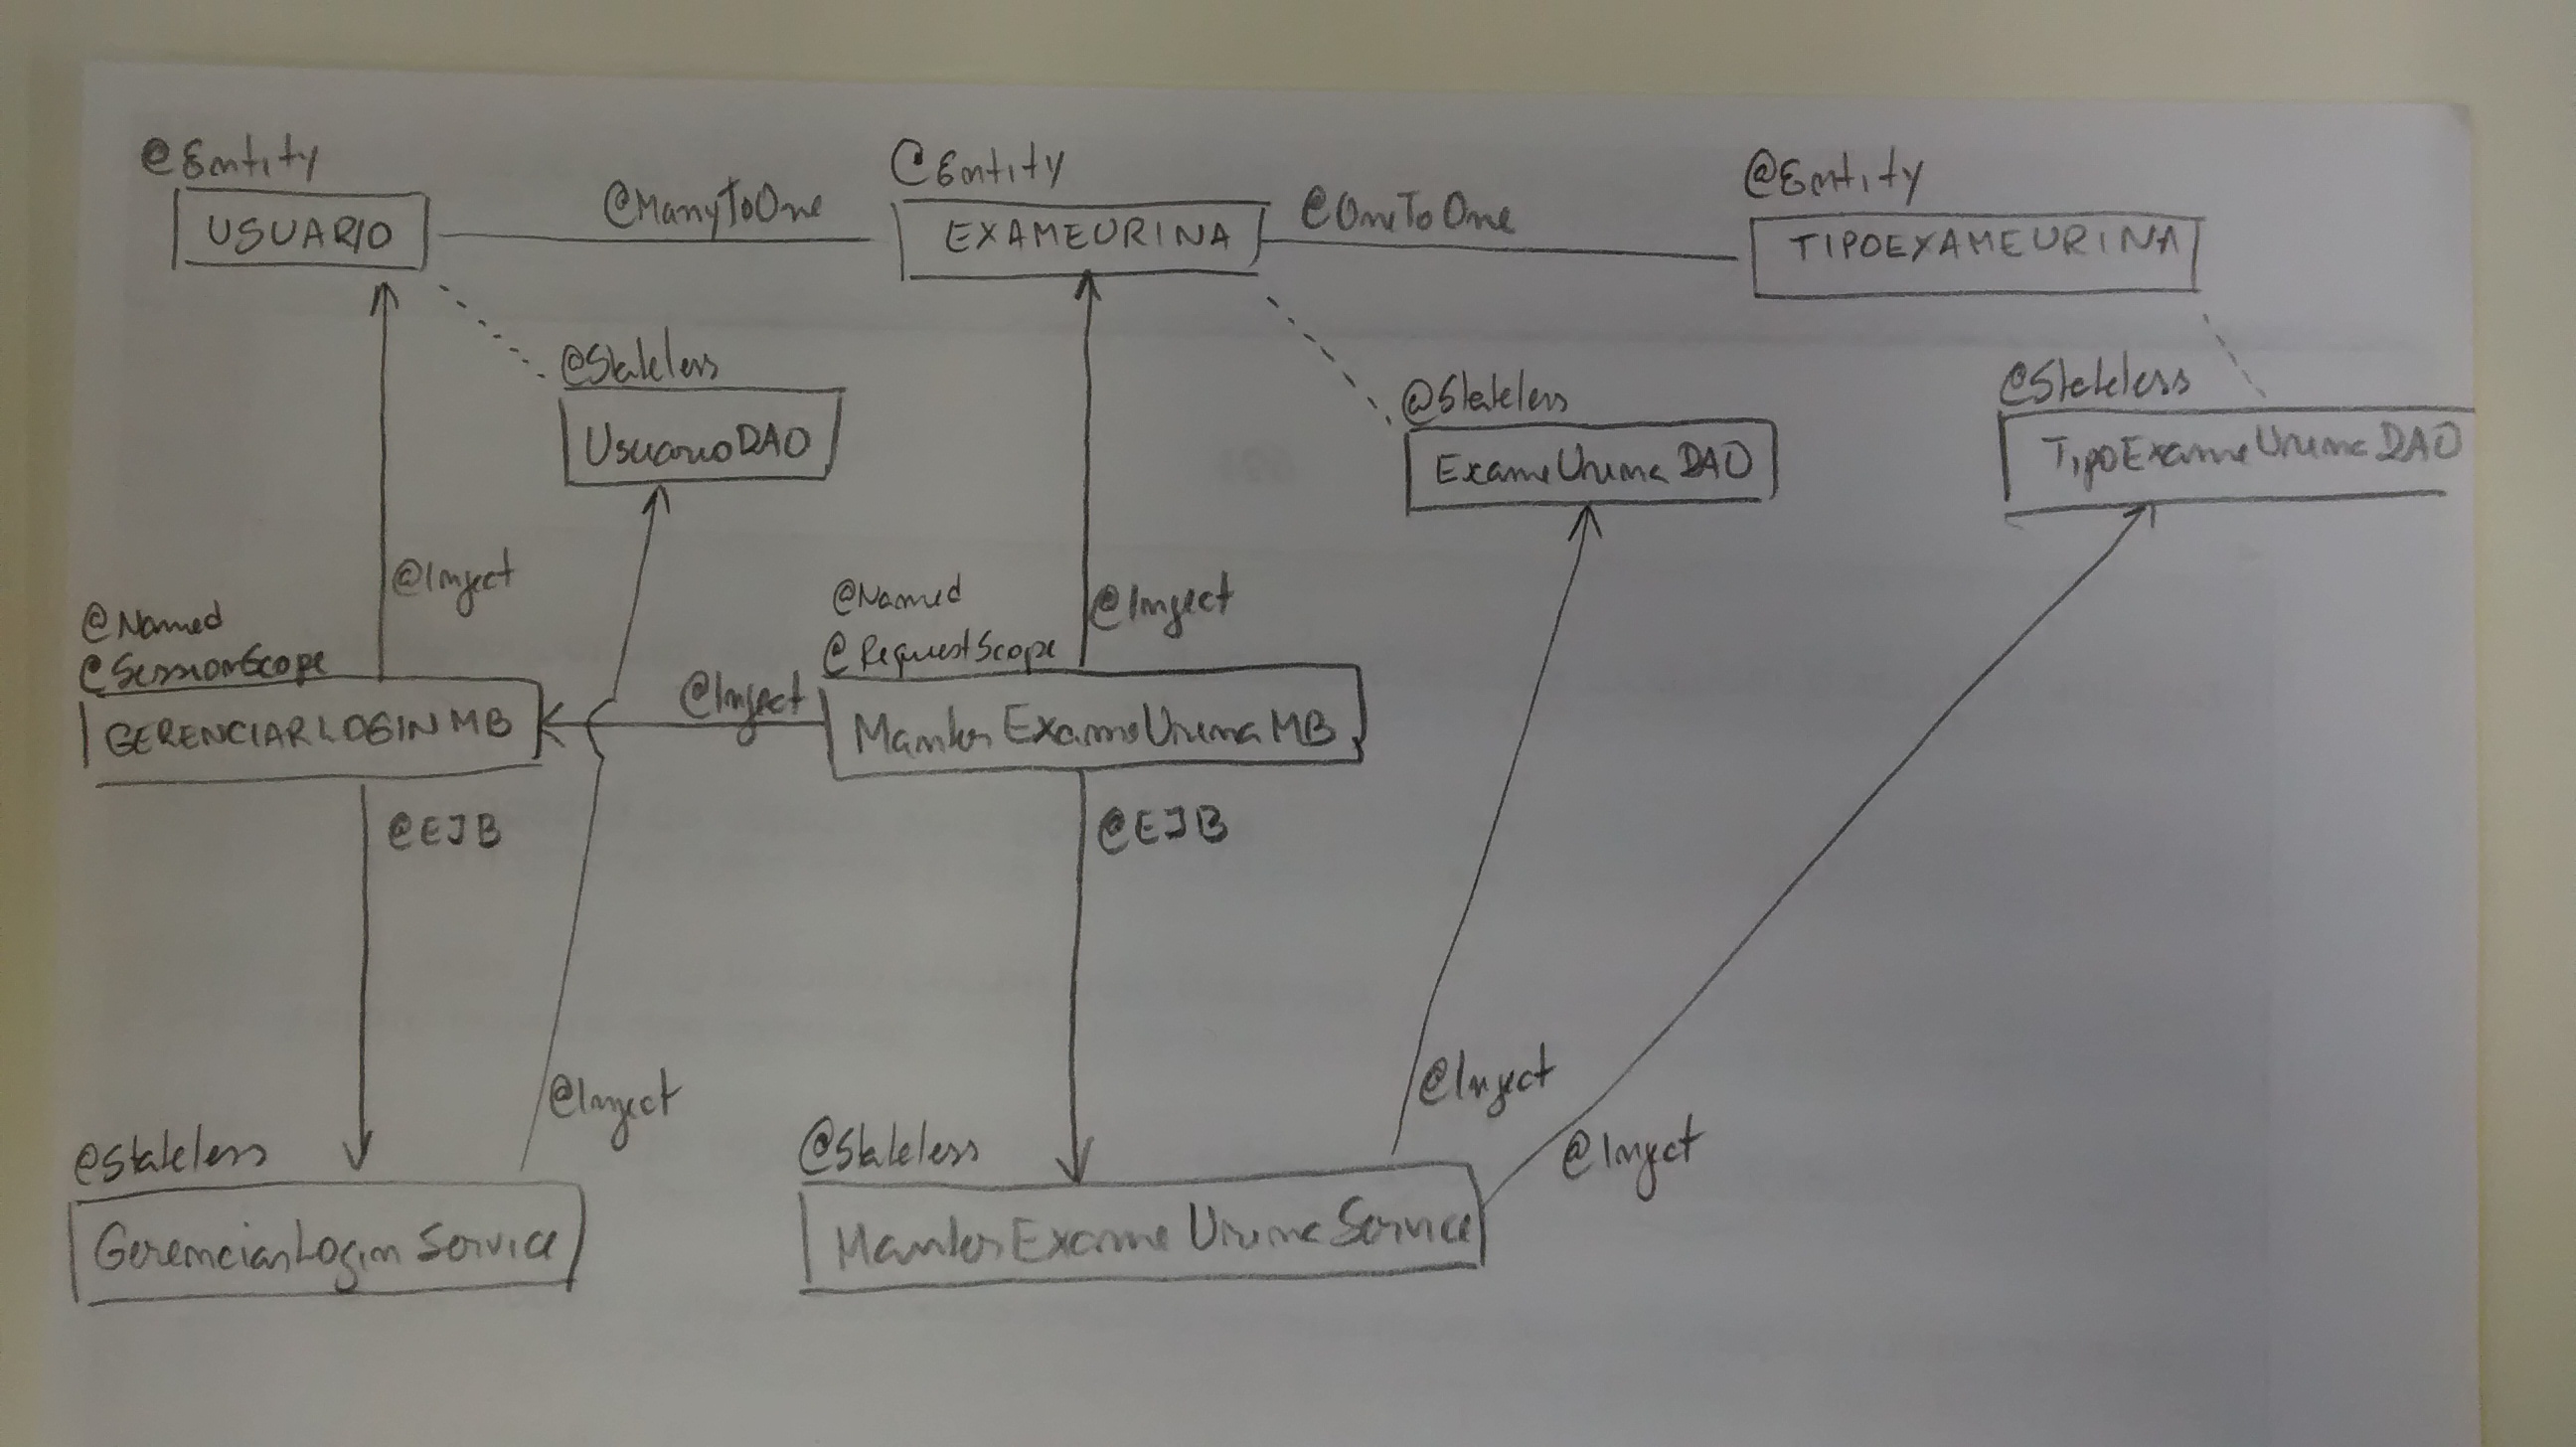 @Entity
USUARIO
@ManyToOne
@Entity
EXAMEURINA
@OneToOne
@Entity
TIPOEXAMEURINA
@Stateless
UsuarioDAO
@Stateless
ExameUrinaDAO
@Stateless
TipoExameUrinaDAO
@Inject
@Named
@SessionScope
GERENCIARLOGINMB
@Inject
@Named
@RequestScope
@Inject
ManterExameUrinaMB
@EJB
@EJB
@Inject
@Inject
@Inject
@Stateless
GerenciarLoginService
@Stateless
ManterExameUrinaService